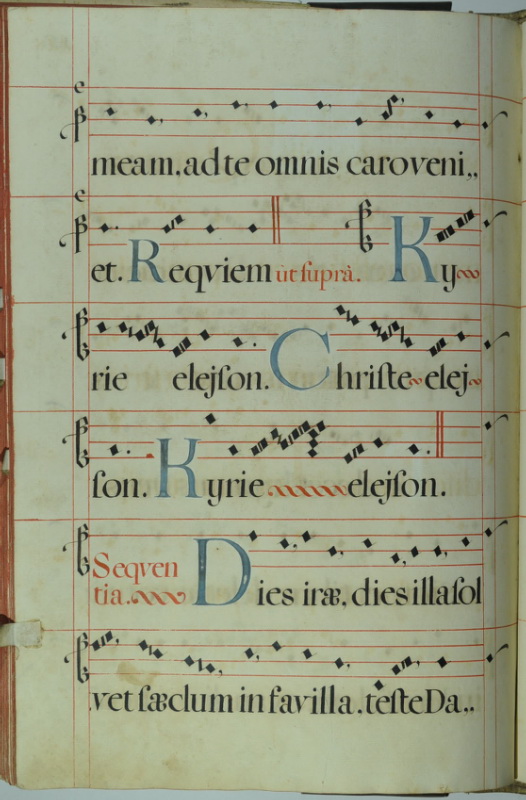 meam. ad te omnis caro veni„
et. Reqviem ut suprà. Ky
rie elejſon. Chriſte elej
ſon. Kyrie elejſon.
Seqven
tia. Dies iræ, dies illa ſol
vet ſæclum in favilla. teſte Da„